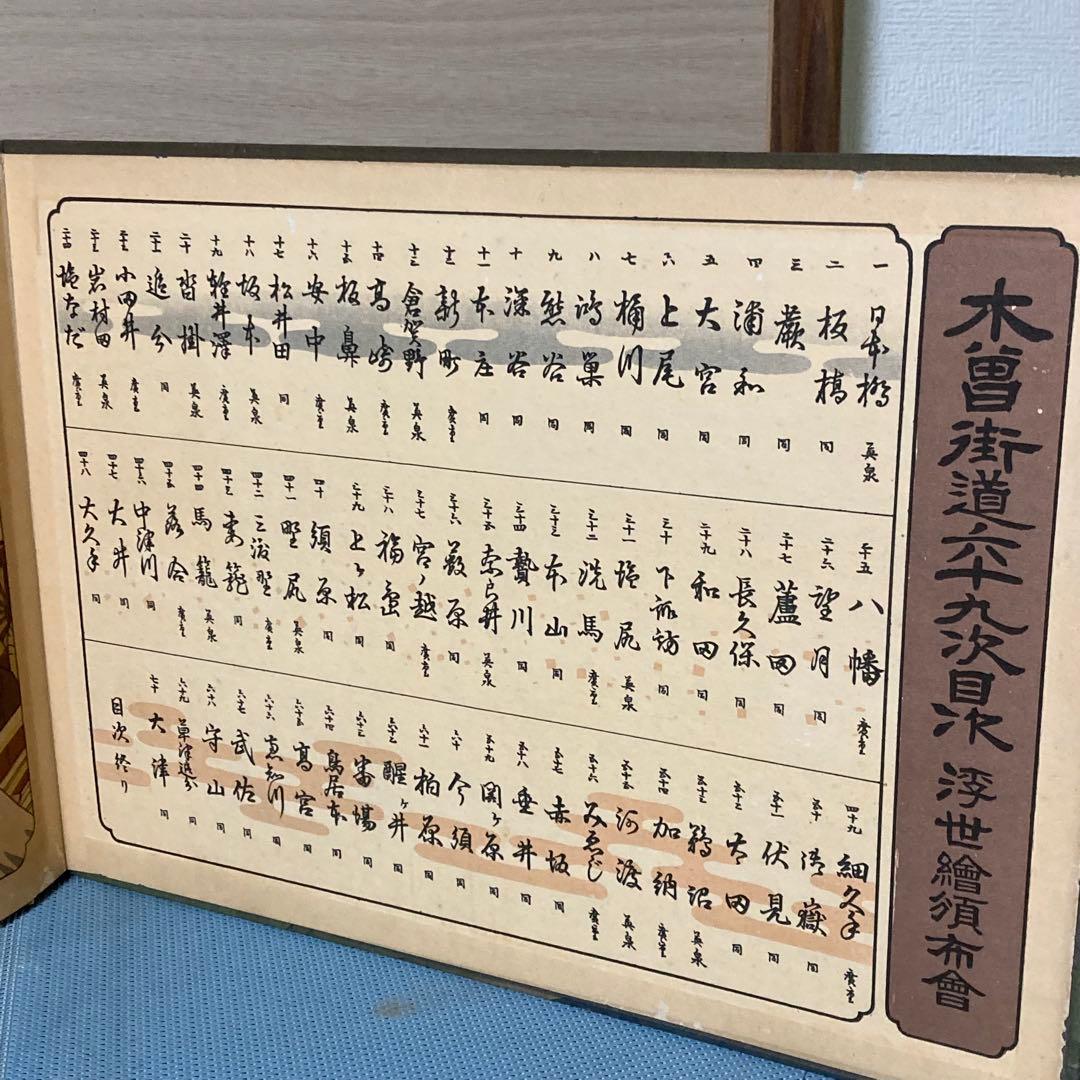 木曽街道六十九次目次 浮世繪頒布會
一 日本橋 英泉
二 板橋 同
三 蕨 同
四 浦和 同
五 大宮 同
六 上尾 同
七 桶川 同
八 鴻巣 同
九 熊谷 同
十 深谷 同
十一 本庄 同
十二 新町 廣重
十三 倉賀野 英泉
十四 高崎 廣重
十五 板鼻 英泉
十六 安中 廣重
十七 松井田 同
十八 坂本 英泉
十九 軽井澤 廣重
二十 沓掛 英泉
二十一 追分 同
二十二 小田井 廣重
二十三 岩村田 英泉
二十四 塩なだ 廣重
二十五 八幡 廣重
二十六 望月 同
二十七 蘆田 同
二十八 長久保 同
二十九 和田 同
三十 下諏訪 同
三十一 塩尻 英泉
三十二 洗馬 廣重
三十三 本山 同
三十四 贄川 同
三十五 奈良井 英泉
三十六 藪原 同
三十七 宮ノ越 廣重
三十八 福島 同
三十九 上ヶ松 同
四十 須原 同
四十一 野尻 英泉
四十二 三渡野 廣重
四十三 妻籠 同
四十四 馬籠 英泉
四十五 落合 廣重
四十六 中津川 同
四十七 大井 同
四十八 大久手 同
四十九 細久手 廣重
五十 御嶽 同
五十一 伏見 同
五十二 太田 同
五十三 鵜沼 英泉
五十四 加納 廣重
五十五 河渡 英泉
五十六 みゑじ 廣重
五十七 赤坂 同
五十八 垂井 同
五十九 関ヶ原 同
六十 今須 同
六十一 柏原 同
六十二 醒ヶ井 同
六十三 番場 同
六十四 鳥居本 同
六十五 高宮 同
六十六 恵知川 同
六十七 武佐 同
六十八 守山 同
六十九 草津追分 同
七十 大津 同
目次終り